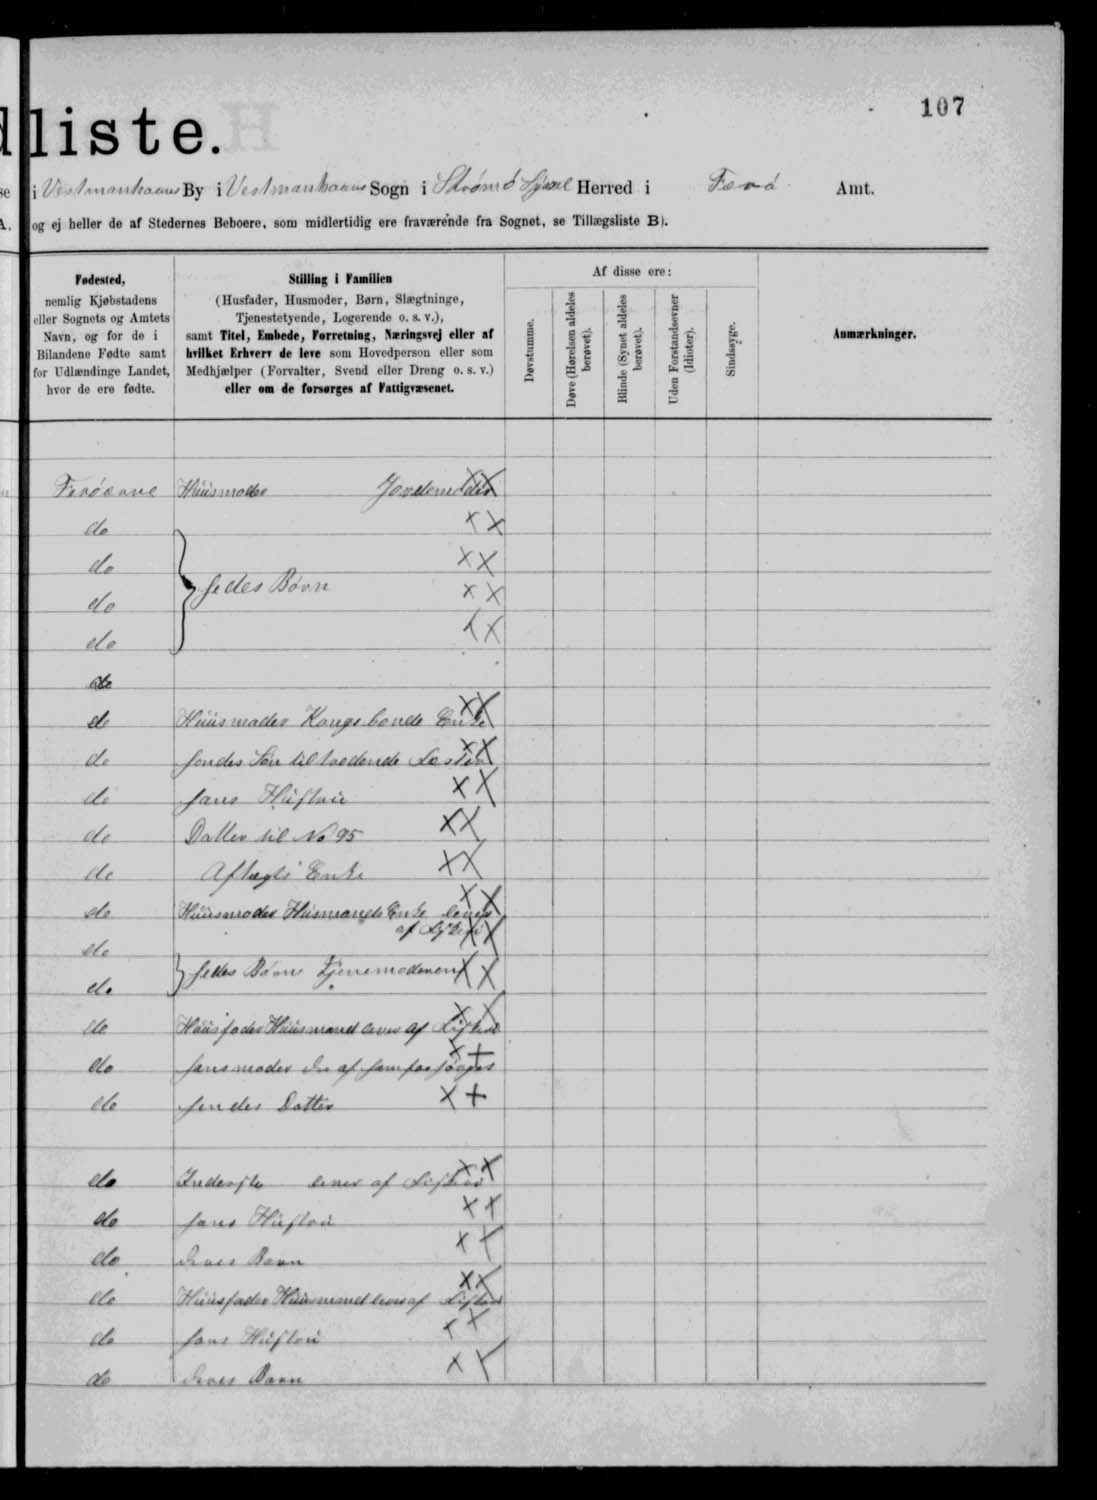 107
liste.
i Vestmanhavns By i Vestmanhavns Sogn i Strømø Syssel Herred i Færø Amt.
og ej heller de af Stedernes Beboere, som midlertidig ere fraværende fra Sognet, se Tillægsliste B).
Fødested,
nemlig Kjøbstadens
eller Sognets og Amtets
Navn, og for de i
Bilandene Fødte samt
for Udlændinge Landet,
hvor de ere fødte.
Stilling i Familien
(Husfader, Husmoder, Børn, Slægtninge,
Tjenestetyende, Logerende o. s. v.),
samt Titel, Embede, Forretning, Næringsvej eller af
hvilket Erhverv de leve som Hovedperson eller som
Medhjælper (Forvalter, Svend eller Dreng o. s. v.)
eller om de forsørges af Fattigvæsenet.
Af disse ere:
Døvstumme.
Døve (Hørelsen aldeles berøvet).
Blinde (Synet aldeles berøvet).
Uden Forstandsevner (Idioter).
Sindssyge.
Anmærkninger.
Færöerne Huusmoder Jordemoder
do
do
hendes Börn
do
do
do
do Huusmoder Kongsbonde Enke
do hendes Sön tiltrædende Fæster
do hans Hustrü
do Datter til No 95
do Aftægts Enke
do Huusmoder Husmands Enke lever
af
do
hendes Börn
do
do Huusfader Huusmand lever af Fiskeri
do hans moder der af ham forsörges
do hendes Datter
do Inderste lever af Fiskeri
do hans Hustrü
do deres Barn
do Huusfader Huusmand lever af Fiskeri
do hans Hustrü
do deres Barn